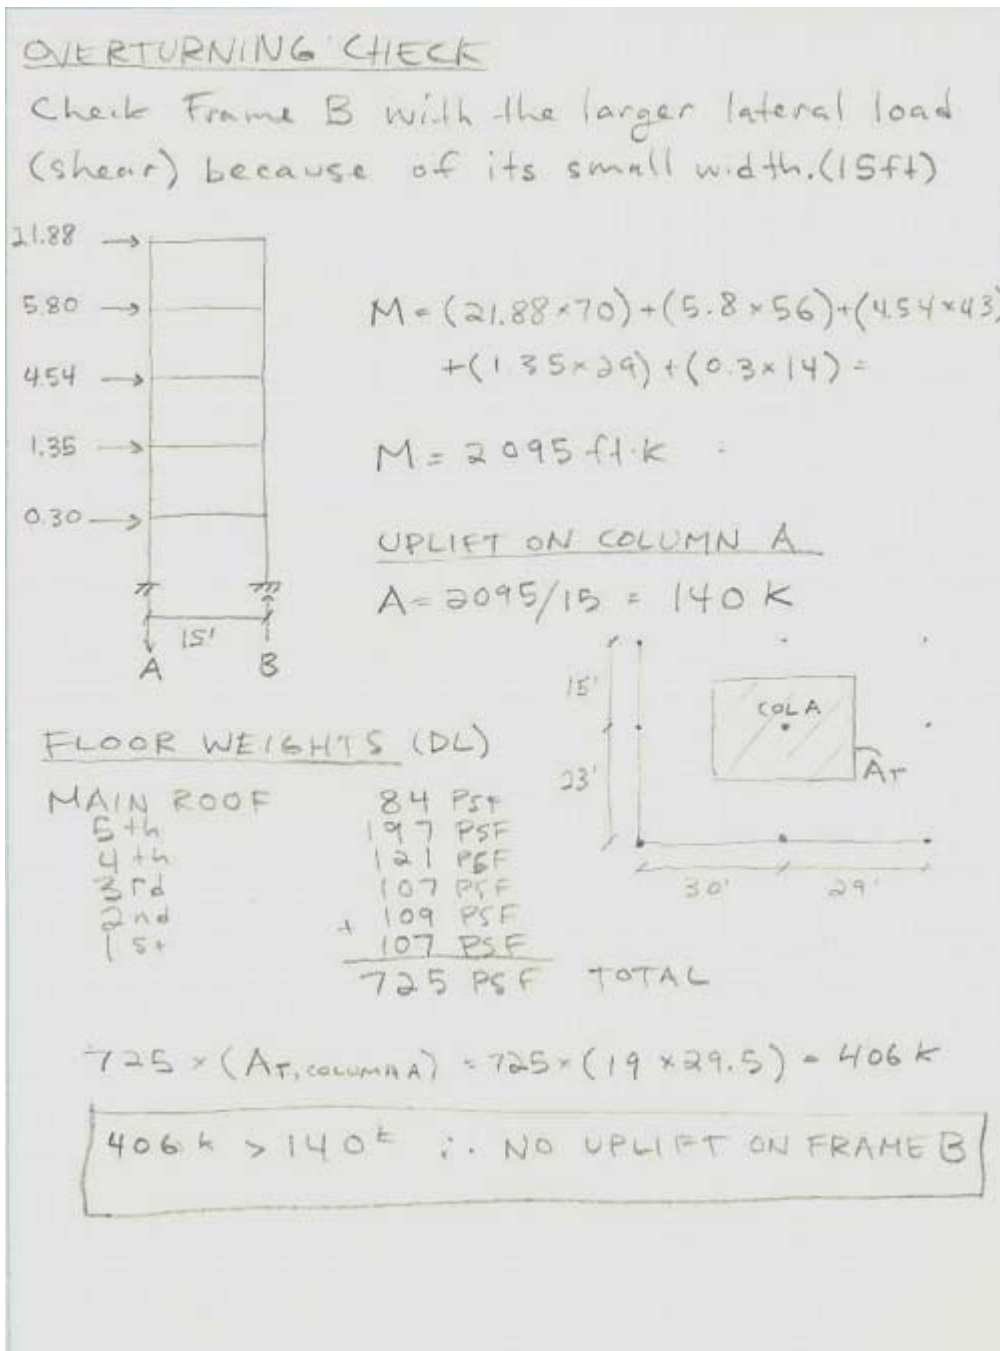 OVERTURNING CHECK
Check Frame B with the larger lateral load
(shear) because of its small width. (15ft)
21.88
5.80
4.54
1.35
0.30
15'
A B
M = (21.88×70)+(5.8×56)+(4.54×43)
+(1.35×29)+(0.3×14) =
M = 2095 ft·k
UPLIFT ON COLUMN A
A = 2095/15 = 140 K
15'
23'
COL A
AT
30' 29'
FLOOR WEIGHTS (DL)
MAIN ROOF 84 PSF
5th 197 PSF
4th 121 PSF
3rd 107 PSF
2nd 109 PSF
1st + 107 PSF
725 PSF TOTAL
725 × (AT, COLUMN A) = 725 × (19 × 29.5) = 406 K
406 k > 140 k ∴ NO UPLIFT ON FRAME B